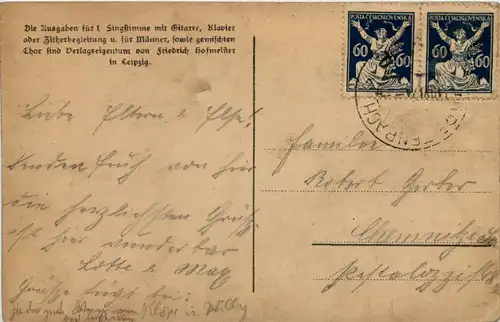 Die Ausgaben für 1 Singstimme mit Gitarre, Klavier
oder Zitherbegleitung u. für Männer, sowie gemischten
Chor sind Verlagseigentum von Friedrich Hofmeister
in Leipzig.
POŠTA ČESKOSLOVENSKÁ
60 60
POŠTA ČESKOSLOVENSKÁ
60 60
Liebe Eltern & Else!
senden Euch von hier
die herzlichsten Grüße
ist hier wunderbar
Lotte & Max
Grüße
u. Willy
Familie
Robert Gerber
Chemnitz
Pestalozzistr.